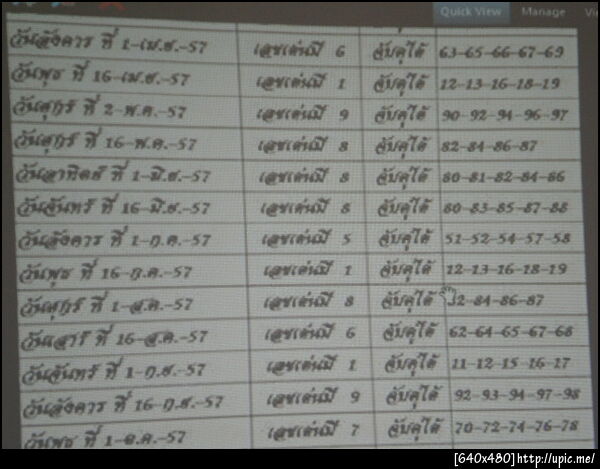 Quick View Manage
วันอังคาร ที่ 1-เม.ย.-57 เลขเด่นมี 6 จับคู่ได้ 63-65-66-67-69
วันพุธ ที่ 16-เม.ย.-57 เลขเด่นมี 1 จับคู่ได้ 12-13-16-18-19
วันศุกร์ ที่ 2-พ.ค.-57 เลขเด่นมี 9 จับคู่ได้ 90-92-94-96-97
วันศุกร์ ที่ 16-พ.ค.-57 เลขเด่นมี 8 จับคู่ได้ 82-84-86-87
วันอาทิตย์ ที่ 1-มิ.ย.-57 เลขเด่นมี 8 จับคู่ได้ 80-81-82-84-86
วันจันทร์ ที่ 16-มิ.ย.-57 เลขเด่นมี 8 จับคู่ได้ 80-83-85-87-88
วันอังคาร ที่ 1-ก.ค.-57 เลขเด่นมี 5 จับคู่ได้ 51-52-54-57-58
วันพุธ ที่ 16-ก.ค.-57 เลขเด่นมี 1 จับคู่ได้ 12-13-16-18-19
วันศุกร์ ที่ 1-ส.ค.-57 เลขเด่นมี 8 จับคู่ได้ 2-84-86-87
วันเสาร์ ที่ 16-ส.ค.-57 เลขเด่นมี 6 จับคู่ได้ 62-64-65-67-68
วันจันทร์ ที่ 1-ก.ย.-57 เลขเด่นมี 1 จับคู่ได้ 11-12-15-16-17
วันอังคาร ที่ 16-ก.ย.-57 เลขเด่นมี 9 จับคู่ได้ 92-93-94-97-98
วันพุธ ที่ 1-ต.ค.-57 เลขเด่นมี 7 จับคู่ได้ 70-72-74-76-78
[640x480]http://upic.me/